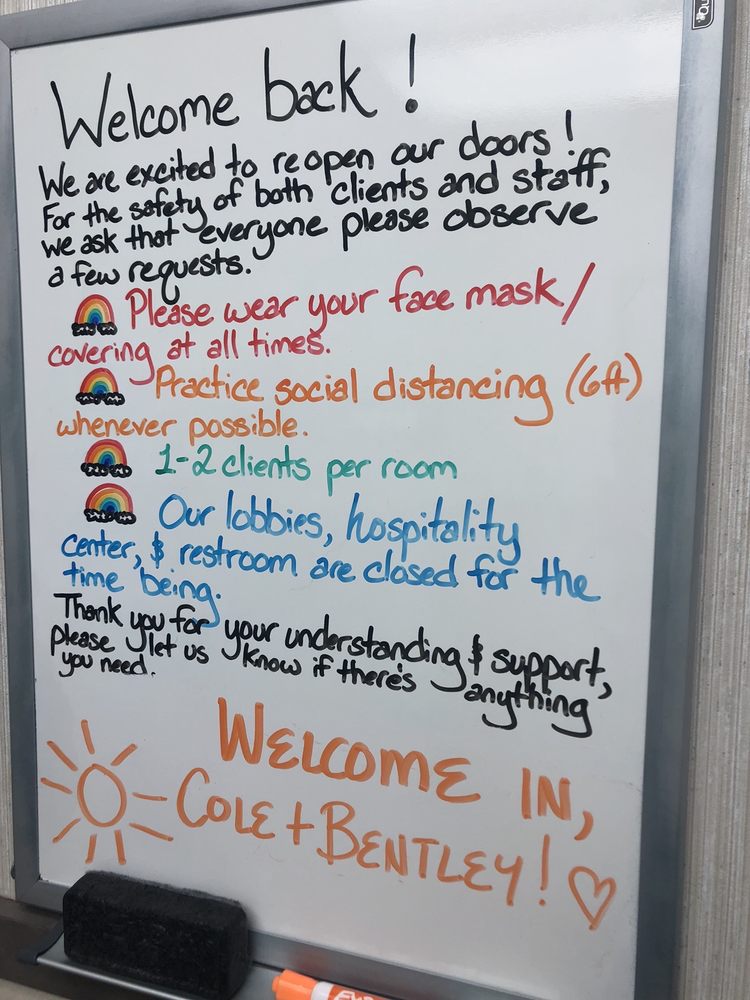 Welcome back!
We are excited to reopen our doors!
For the safety of both clients and staff,
we ask that everyone please observe
a few requests.
Please wear your face mask/
covering at all times.
Practice social distancing (6ft)
whenever possible.
1-2 clients per room
Our lobbies, hospitality
center, & restroom are closed for the
time being.
Thank you for your understanding & support,
please let us know if there's anything
you need.
WELCOME IN,
COLE + BENTLEY!